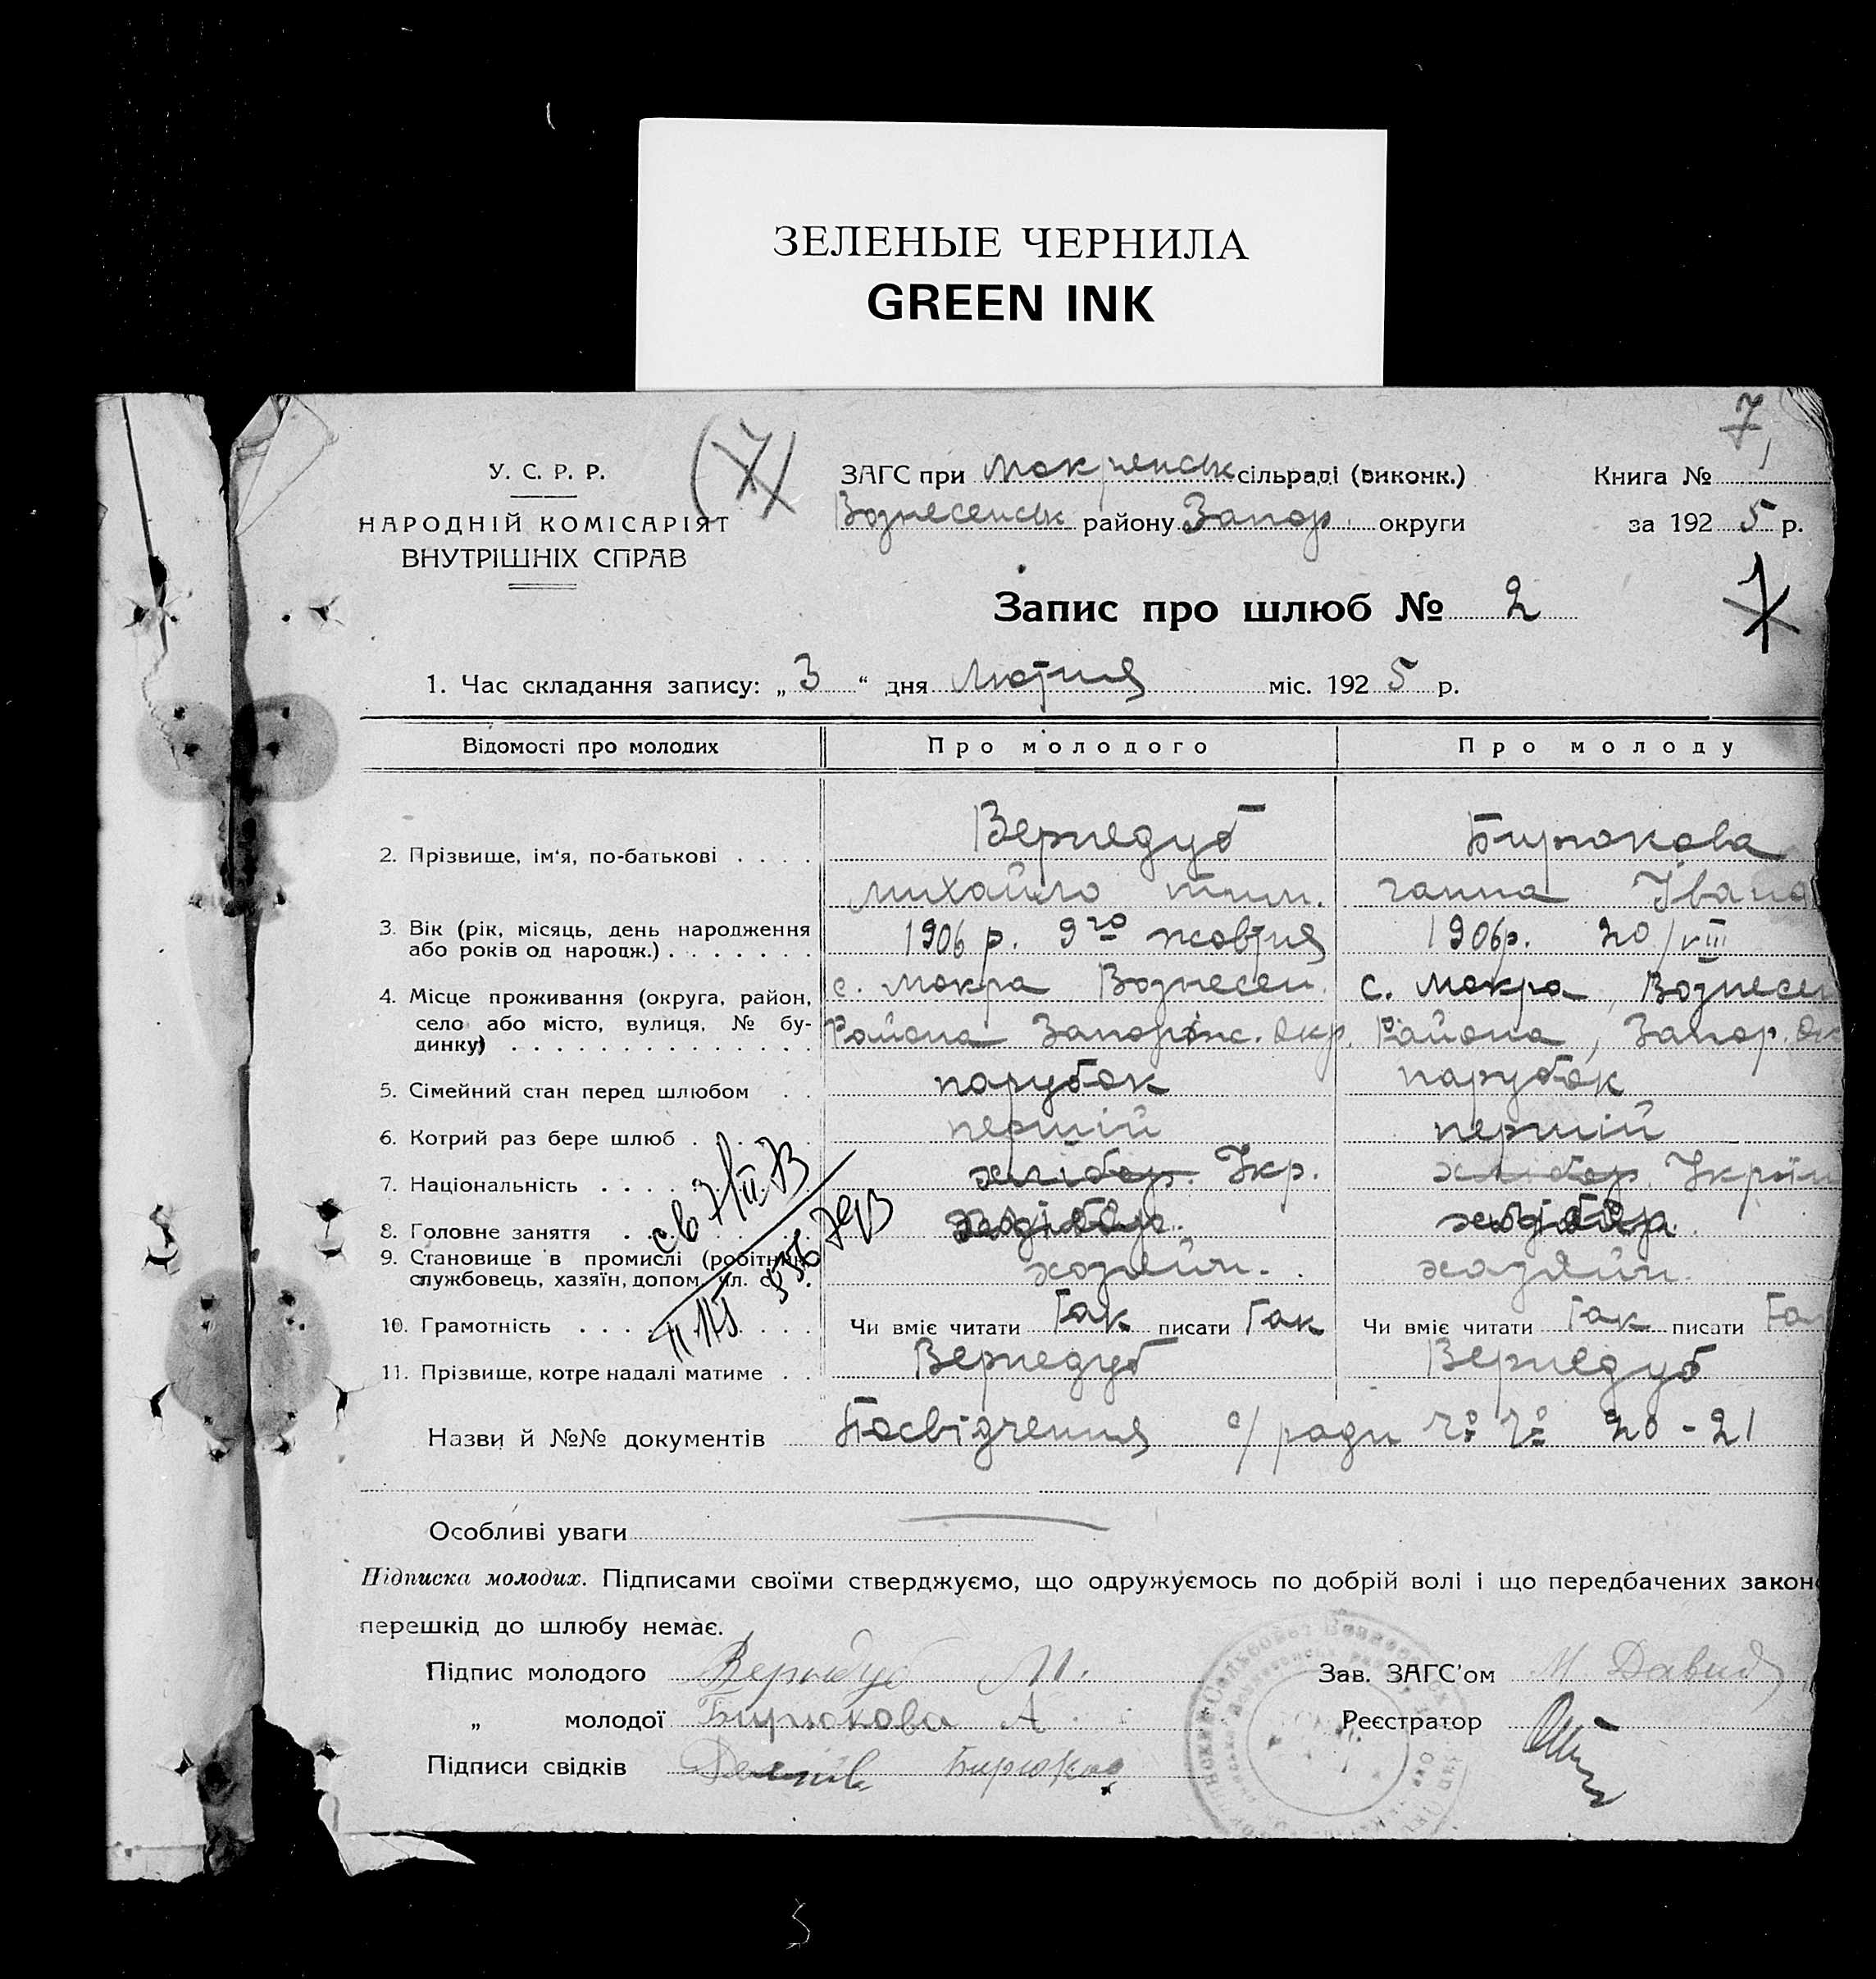 ЗЕЛЕНЫЕ ЧЕРНИЛА
GREEN INK
7
У. С. Р. Р.
НАРОДНІЙ КОМІСАРІЯТ
ВНУТРІШНІХ СПРАВ
(7)
ЗАГС при Мокрянськ сільраді (виконк.)
Вознесенськ району Запор. округи
Книга №
за 1925 р.
Запис про шлюб № 2
1. Час складання запису: „ 3 “ дня Лютня міс. 1925 р.
Відомості про молодих Про молодого Про молоду
2. Прізвище, ім'я, по-батькові . . . . Вернедуб Бирюкова
михайло тим. ганна Івано
3. Вік (рік, місяць, день народження 1906 р. 9го жовтня 1906р. 20/VIII
або років од народж.) . . . . . . .
4. Місце проживання (округа, район, с. мокра Вознесен. с. мокра, Вознесен
село або місто, вулиця, № бу- Района Запоріж. Окр. Района, Запор. Ок
динку) . . . . . . . . . . . . . .
5. Сімейний стан перед шлюбом . . парубок парубок
6. Котрий раз бере шлюб . . . . . першій перший
7. Національність . . . . . . хлібор. Укр. хлібор. Україн
8. Головне заняття . . . . . хлібор. хлібор.
9. Становище в промислі (робітник,
службовець, хазяїн, допом. чл. с. хозяйн. хазяйн.
10. Грамотність . . . . . . . . . Чи вміє читати Так писати Так Чи вміє читати Так писати Так
11. Прізвище, котре надалі матиме . . Вернедуб Вернедуб
Назви й №№ документів Посвідчення с/ради №№ 20 - 21
Особливі уваги
Підписка молодих. Підписами своїми стверджуємо, що одружуємось по добрій волі і що передбачених закон
перешкід до шлюбу немає.
Підпис молодого Вернедуб М. Зав. ЗАГС'ом М. Давид
„ молодої Бирюкова А. Реєстратор
Підписи свідків Бирюков